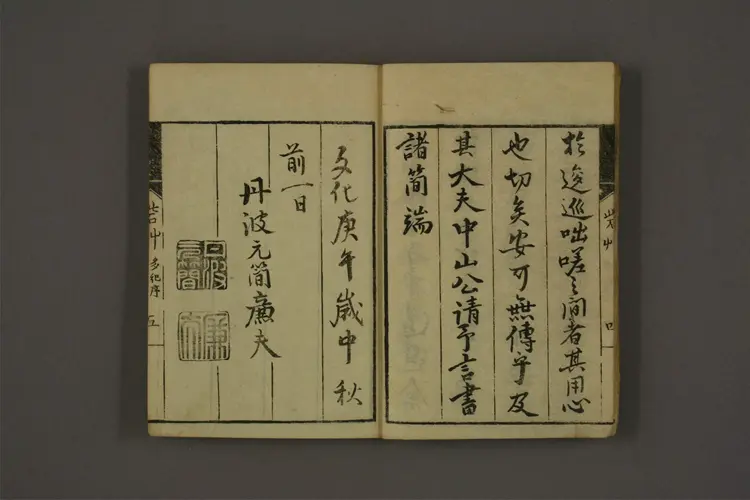 於逡巡咄嗟之間者其用心
也切矣安可無傳乎及
其大夫中山公請予言書
諸簡端
文化庚午歲中秋
前一日
丹波元簡廉夫
丹波元簡
廉夫
多紀序
五
四